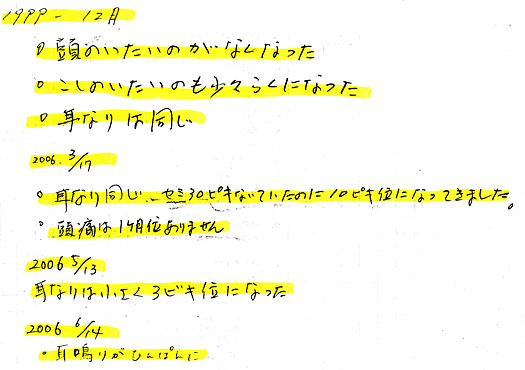 1999 - 12月
○ 頭のいたいのがなくなった
○ こしのいたいのも少々らくになった
○ 耳なりは同じ
2006. 3/17
○ 耳なり同じ、セミ30ピキないていたのに10ピキ位になってきました。
○ 頭痛は1ヶ月位ありません
2006 5/13
耳なりは小さく3ビキ位になった
2006 6/14
○ 耳鳴りがひんぱんに